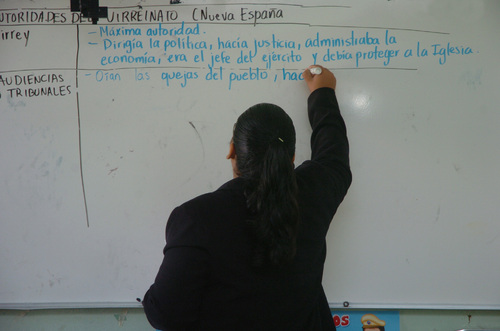 AUTORIDADES DEL VIRREINATO (Nueva España
irrey
- Máxima autoridad.
- Dirigía la política, hacía justicia, administraba la
economía, era el jefe del ejército y debía proteger a la Iglesia.
AUDIENCIAS
O TRIBUNALES
- Oían las quejas del pueblo, hac
OS